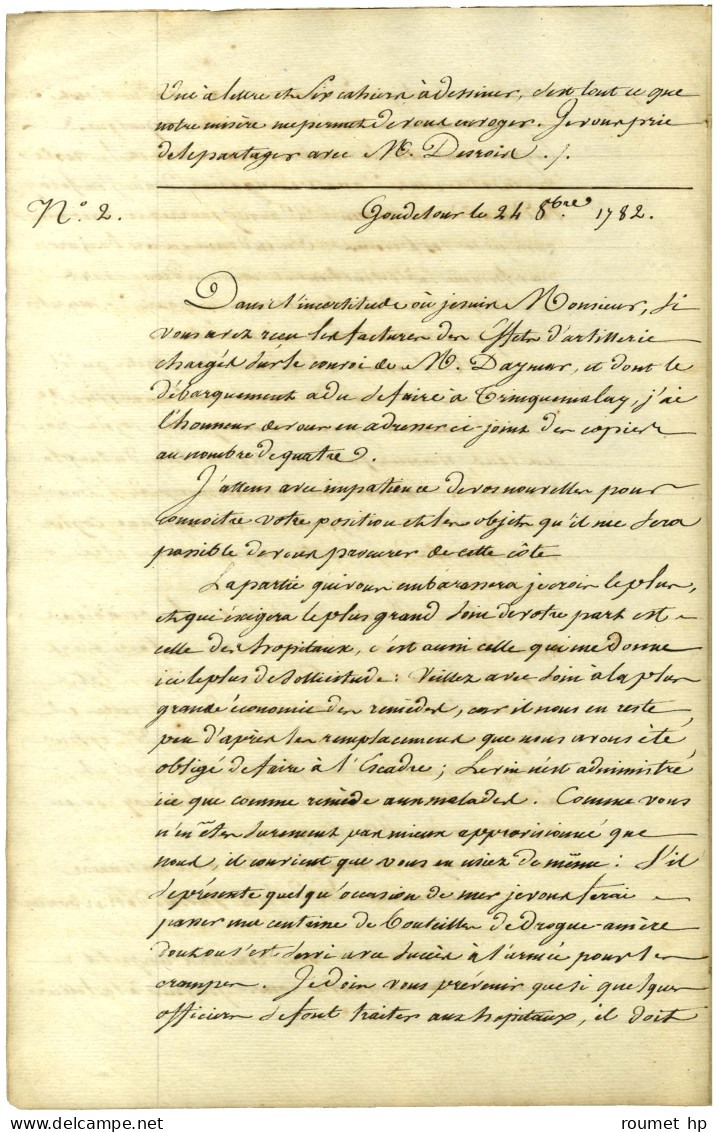 une à lettre et six cahiers à dessiner, c'est tout ce que
notre misère me permet de vous envoyer. Je vous prie
de le partager avec M. Desroix ./.
N.° 2. Goudelour le 24 8.bre 1782.
Dans l'incertitude où je suis Monsieur, si
vous avez reçu les factures des Effets d'artillerie
chargés sur le convoi de M. Daymar, et dont le
débarquement a du se faire à Trinquemalay, j'ai
l'honneur de vous en adresser ci-joint des copies
au nombre de quatre.
J'attens avec impatience de vos nouvelles pour
connoitre votre position et les objets qu'il me sera
possible de vous procurer de cette côte
La partie qui vous embarassera je crois le plus,
et qui éxigera le plus grand soin de votre part est
celle des hopitaux, c'est aussi celle qui me donne
ici le plus de sollicitude : Veillez avec soin à la plus
grande économie des remèdes, car il nous en reste
peu d'après les remplacemens que nous avons été
obligé de faire à l'Escadre ; Le vin n'est administré
ici que comme remède aux malades. Comme vous
n'en êtes surement pas mieux approvisionné que
nous, il convient que vous en usiez de même : S'il
se présente quelqu'occasion de mer je vous ferai
passer une centaine de bouteilles de drogue amère
dont on s'est servi avec succès à l'armée pour les
crampes. Je dois vous prévenir que si quelques
officiers se font traiter aux hopitaux, il doit
roumet hp